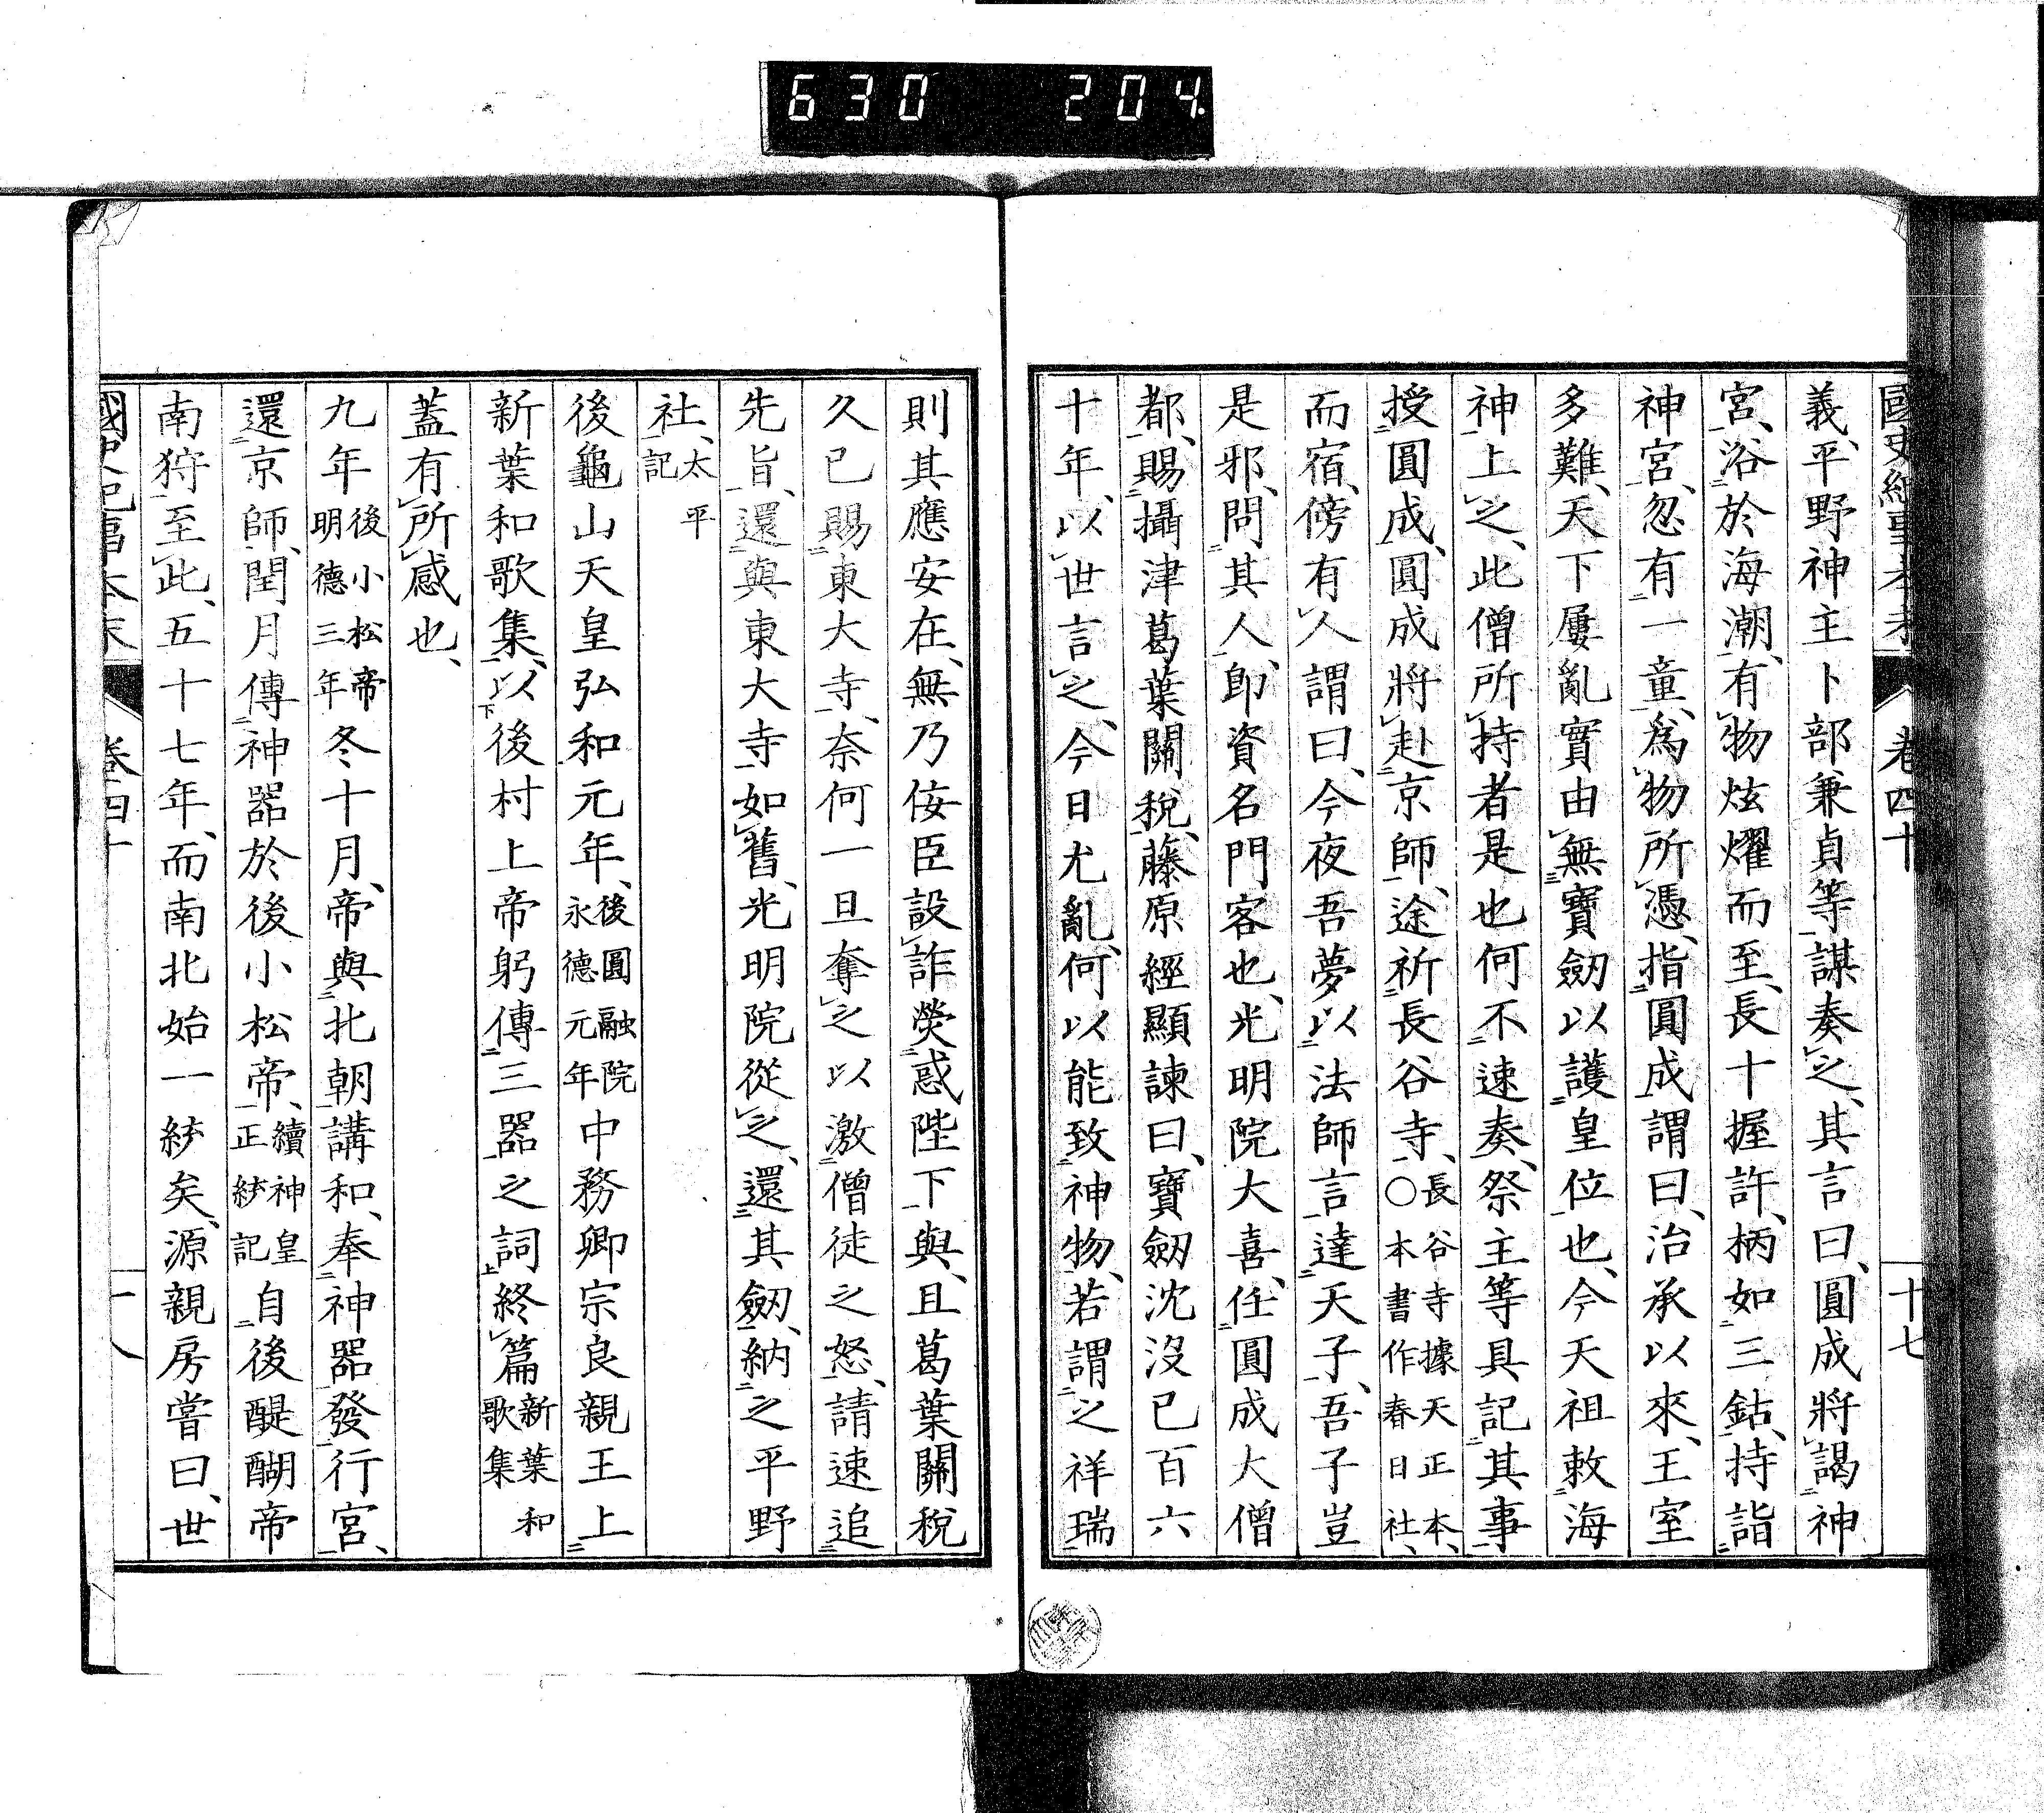 630 204
國史紀事本末 卷四十 十七
義、平野神主卜部兼貞等謀奏之、其言曰、圓成將謁神
宮、浴於海潮、有物炫燿而至、長十握許、柄如三鈷、持詣
神宮、忽有一童、爲物所憑、指圓成謂曰、治承以來、王室
多難、天下屢亂、實由無寶劒以護皇位也、今天祖敕海
神上之、此僧所持者是也、何不速奏、祭主等具記其事
授圓成、圓成將赴京師、途祈長谷寺、長谷寺據天正本、〇本書作春日社、
而宿、傍有人謂曰、今夜吾夢以法師言達天子、吾子豈
是邪、問其人、卽資名門客也、光明院大喜、任圓成大僧
都、賜攝津葛葉關稅、藤原經顯諫曰、寶劒沈沒已百六
十年、以世言之、今日尤亂、何以能致神物、若謂之祥瑞
則其應安在、無乃侫臣設詐熒惑陛下與、且葛葉關稅
久已賜東大寺、奈何一旦奪之以激僧徒之怒、請速追
先旨、還與東大寺如舊、光明院從之、還其劒、納之平野
社、太平記
後龜山天皇弘和元年、後圓融院永德元年中務卿宗良親王上
新葉和歌集、以後村上帝躬傳三器之詞終篇新葉和歌集
蓋有所感也、
九年後小松帝明德三年冬十月、帝與北朝講和、奉神器發行宮、
還京師、閏月傳神器於後小松帝、續神皇正統記自後醍醐帝
南狩至此、五十七年、而南北始一統矣、源親房嘗曰、世
國史紀事本末 卷四十 十八